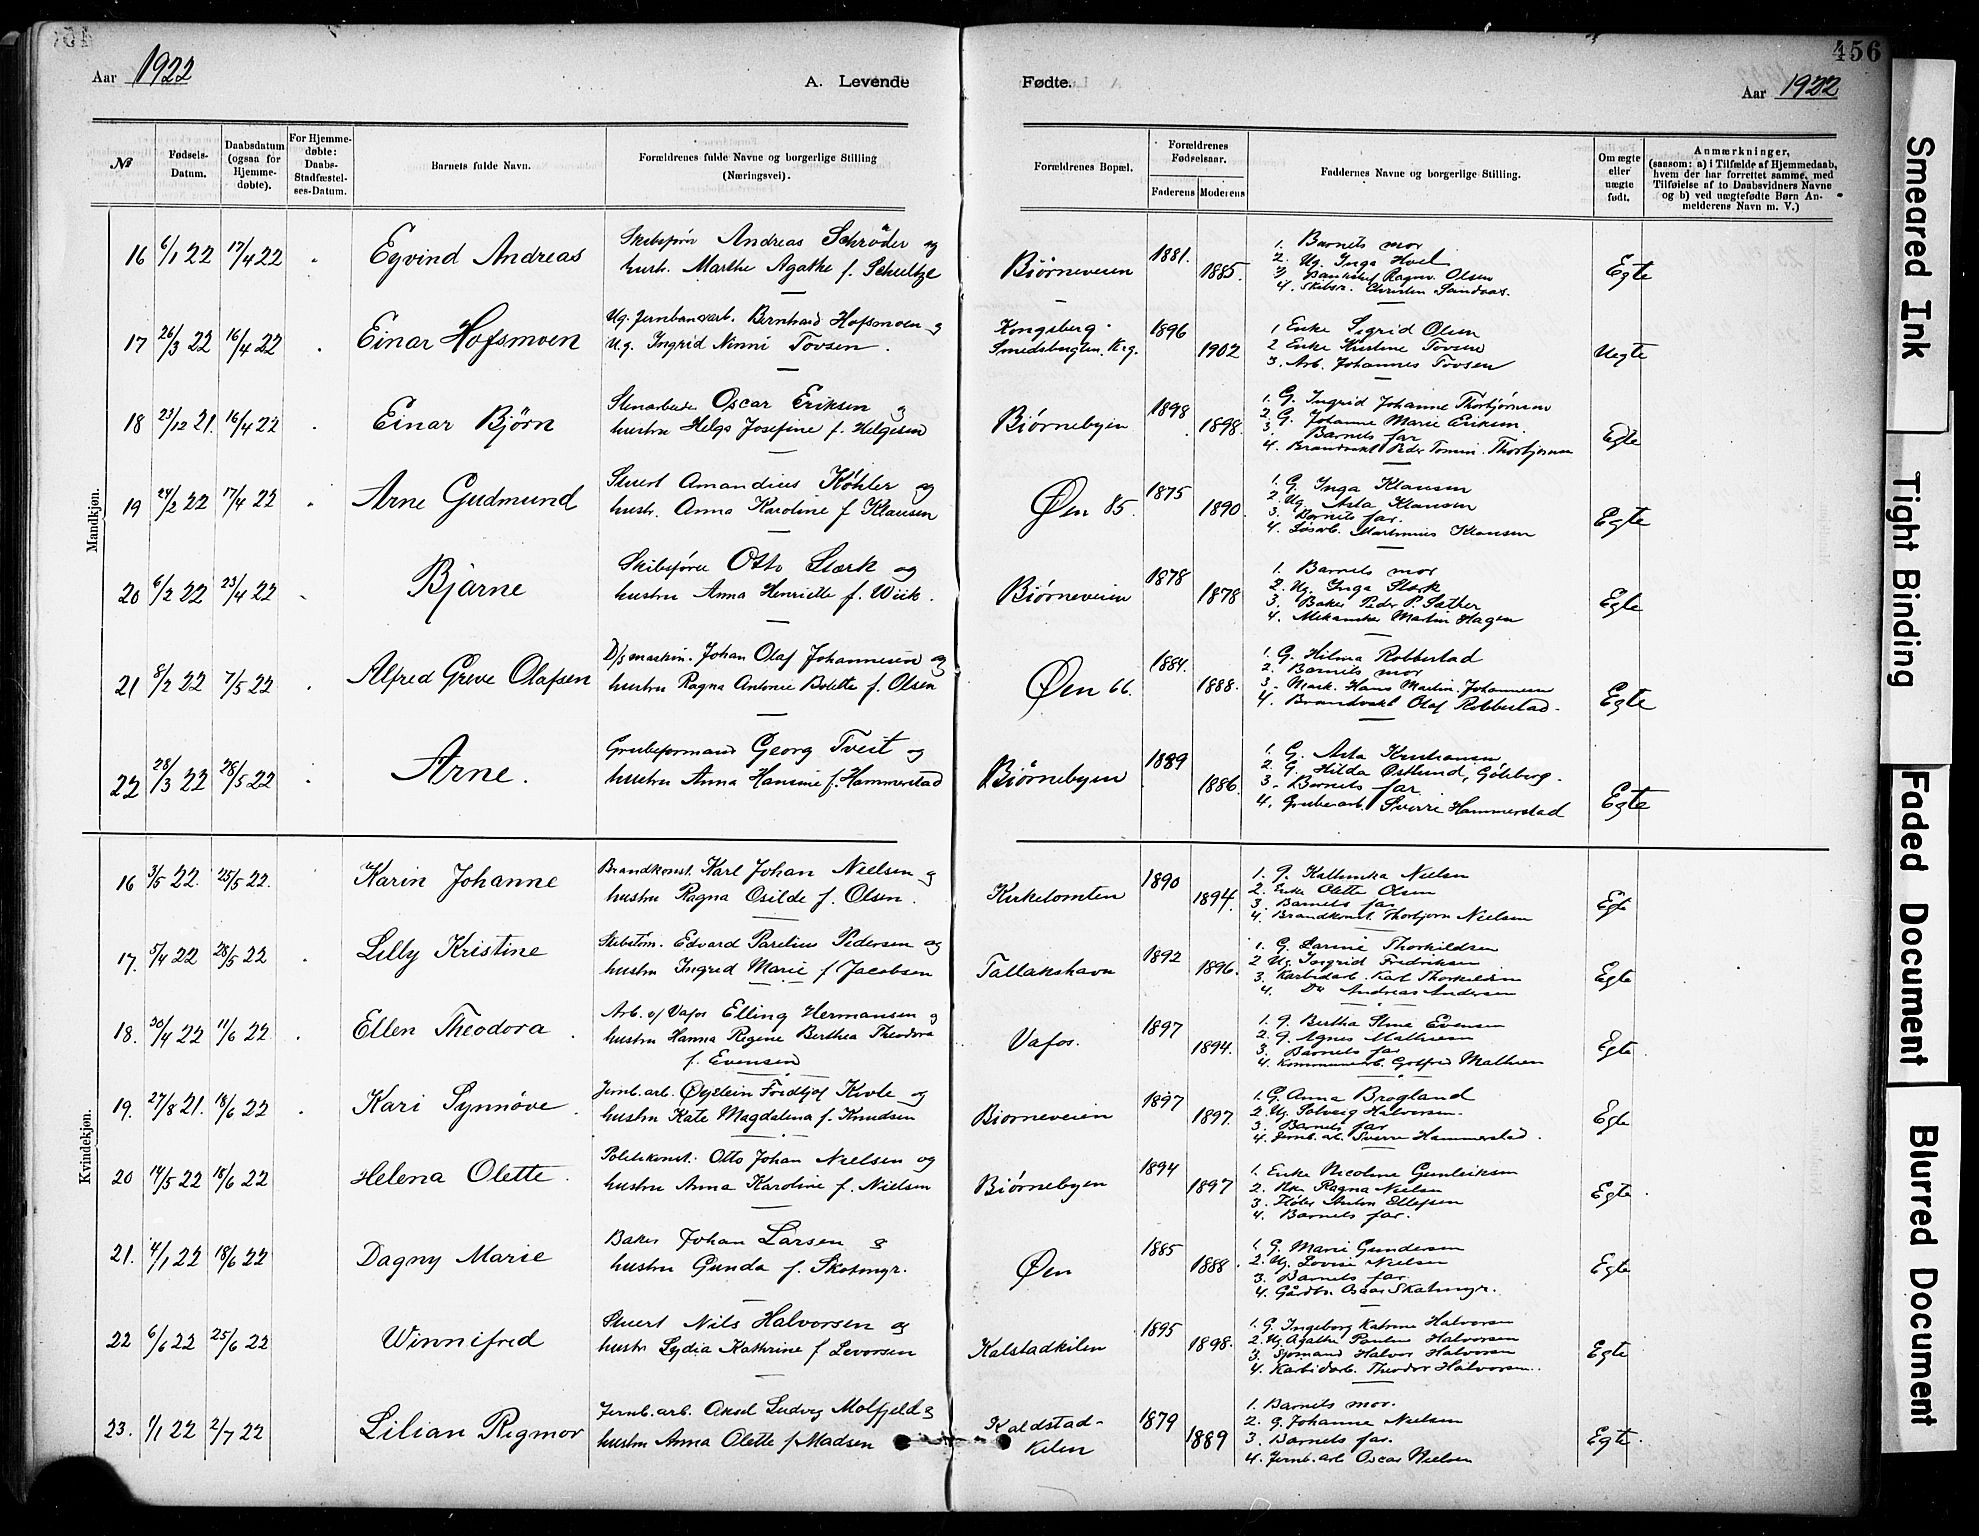 456
Aar 1922
A. Levende
Fødte.
Aar 1922
№
Fødsels-Datum.
Daabsdatum (ogsaa for Hjemme-døbte).
For Hjemme-døbte: Daabs-Stadfæstel-ses-Datum.
Barnets fulde Navn.
Forældrenes fulde Navne og borgerlige Stilling (Næringsvei).
Forældrenes Bopæl.
Forældrenes Fødselsaar.
Faderens
Moderens
Faddernes Navne og borgerlige Stilling.
Om ægte eller uægte født.
Anmærkninger,
(saasom: a) i Tilfælde af Hjemmedaab,
hvem der har forrettet samme, med
Tilføielse af to Daabsvidners Navne
og b) ved uægtefødte Børn An-
melderens Navn m. V.)
Mandkjøn.
16 6/1 22 17/4 22 Eyvind Andreas
Skibsfører Andreas Schrøder og
hust. Marthe Agathe f. Schultze
Bjørneveien 1881. 1885.
1. Barnets mor
2. Ug. Inga Hvel
3. Ragnv. Olsen
4. Skibsr. Christen Sandaas.
Egte
17 26/3 22 16/4 22 Einar Hofsmoen
Ug. Jernbanearb. Bernhard Hofsmoen og
Ug. Ingrid Ninni Tovsen.
Kongsberg.
Smedsbugten. Krg.
1896 1902
1 Enke Sigrid Olsen
2 Enke Kristine Tovsen
3. Arb. Johannes Tovsen
Uegte
18 23/12 21. 16/4 22 Einar Bjørn
Stenarbeider Oscar Eriksen og
hustru Helga Josefine f. Helgesen
Bjørnebyen 1898 1898.
1. G. Ingrid Johanne Thorbjørnsen
2. G. Johanne Marie Eriksen.
3. Barnets far
4. Brandvakt Peder Tomin. Thorbjørnsen
Egte
19 24/2 22 17/4 22 Arne Gudmund
Stuert Amandius Køhler og
hustr. Anna Karoline f. Klausen
Øen 85. 1875 1890.
1. G. Inga Klausen
2. Ug. Asta Klausen
3. Barnets far.
4. Løsarb. Martinius Klausen
Egte
20 6/2 22 23/4 22 Bjarne
Skibsfører Otto Stærk og
hustru Anna Henriette f. Wiik.
Bjørneveien 1878 1878
1. Barnets mor
2. Ug. Inga Stærk
3. Baker Peder P. Sæther
4. Mekaniker Martin Hagen
Egte
21 8/2 22 7/5 22 Alfred Greve Olafsen
D/s maskin. Johan Olaf Johannesen og
hustru Ragna Antonie Bolette f. Olsen
Øen 66. 1884. 1888.
1. G. Hilma Robberstad
2. Barnets mor
3. Mask. Hans Martin Johannesen
4. Brandvakt Olaf Robberstad.
Egte
22 28/3 22 28/5 22 Arne.
Grubeformand Georg Tveit og
hustru Anna Hansine f. Hammerstad
Bjørnebyen 1889 1886.
1. G. Asta Kristiansen
2. G. Hilda Østlund, Göteborg.
3. Barnets far
4. Grubearb. Sverre Hammerstad
Egte
Kvindekjøn.
16 3/5 22. 25/5 22. Karin Johanne
Brandkonst. Karl Johan Nielsen og
hustru Ragna Osilde f. Olsen.
Kirketomten 1890 1894.
1. G. Kathinka Nielsen
2. Enke Olette Olsen
3. Barnets far
4. Brandkonst. Thorbjørn Nielsen
Egte
17. 5/4 22 28/5 22 Lilly Kristine
Skibstøm. Edvard Parelius Pedersen og
hustru Ingrid Marie f. Jacobsen
Tallakshavn 1892 1896.
1. G. Larine Thorkildsen
2 Ug. Ingrid Fredriksen
3. Karbidarb. Karl Thorkildsen
4. Do Andreas Andersen
Egte
18. 30/4 22 11/6 22 Ellen Theodora
Arb. v/ Vafos Elling Hermansen og
hustru Hanna Regine Berthea Theodora
f. Evensen
Vafos. 1897 1894.
1. G. Bertha Stine Evensen
2. G. Agnes Mathisen
3. Barnets far
4. Kommunearb. Gotfred Mathisen
Egte
19. 27/8 21. 18/6 22 Kari Synnøve
Jernb. arb. Øystein Fridtjof Kivle og
hustru Kate Magdalena f. Knudsen
Bjørneveien 1897 1897.
1. G. Anna Brogland
2. Ug. Solveig Halvorsen.
3. Barnets far
4. Jernb. arb. Sverre Hammerstad.
Egte
20 14/5 22 18/6 22 Helena Olette
Politikonst. Otto Johan Nielsen og
hustru Anna Karoline f. Nielsen
Bjørnebyen 1894 1897
1. Enke Nicoline Gunleiksen
2. Ragna Nielsen
3. Fløter Anton Ellefsen
4. Barnets far.
Egte
21. 4/1 22 18/6 22 Dagny Marie
Baker Johan Larsen og
hustru Gunda f. Skotmyr.
Øen 1885 1888
1. G. Marie Gundersen
2. Ug. Lovise Nielsen
3. Barnets far
4. Gårdbr. Oscar Skotmyr.
Egte
22 6/6 22 25/6 22 Winnifred
Stuert Nils Halvorsen og
hustr. Lydia Kathrine f. Levorsen
Kalstadkilen 1895 1898.
1. G. Ingeborg Katrine Halvorsen
2. Ug. Agathe Pauline Halvorsen
3. Sjømand Halvor Halvorsen
4. Karbidarb. Theodor Halvorsen.
Egte
23. 1/1 22 2/7 22 Lilian Rigmor
Jernb. arb. Aksel Ludvig Molfjeld og
hustru Anna Olette f. Madsen
Kaldstad-
kilen
1879 1889
1. Barnets mor.
2. G. Johanne Nielsen
3. Barnets far.
4. Jernb. arb. Oscar Nielsen
Egte.
Smeared Ink
Tight Binding
Faded Document
Blurred Document